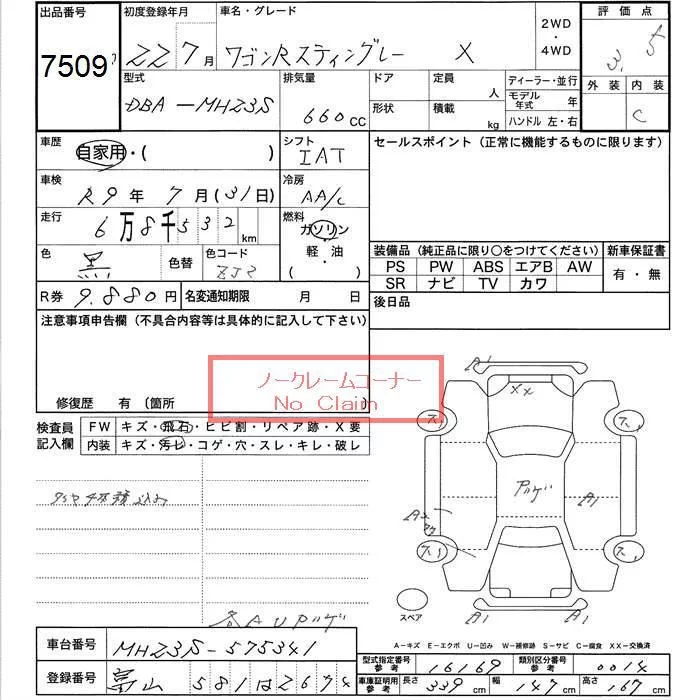 出品番号 初度登録年月 車名・グレード 2WD・4WD 評価点
7509 22 7月 ワゴンRスティングレー X 3.5
型式 排気量 ドア 定員 人 ディーラー・並行 外装 内装
DBA-MH23S 660cc 形状 積載 kg モデル年式 年 ハンドル 左・右 C
車歴 自家用・( ) シフト IAT セールスポイント（正常に機能するものに限ります）
車検 R9年7月(31日) 冷房 AA/C
走行 6万8千532km 燃料 ガソリン 軽・油 ( )
色 黒 色替 色コード ZJ3
装備品（純正品に限り○をつけてください） 新車保証書
PS PW ABS エアB AW 有・無
SR ナビ TV カワ
R券 9,880円 名変通知期限 月 日 後日品
注意事項申告欄（不具合内容等は具体的に記入して下さい）
ノークレームコーナー
No Claim
修復歴 有（箇所
検査員記入欄 FW キズ・飛石・ヒビ割・リペア跡・X要
内装 キズ・汚レ・コゲ・穴・スレ・キレ・破レ
A1
XX
ス1 ス1
アリゲ A1
A2
ス1 ス1
スペア A1 A1
各AUアリゲ
A-キズ E-エクボ U-凹み W-補修跡 S-サビ C-腐食 XX-交換済
車台番号 MH23S-575341
型式指定番号参考 16169 類別区分番号参考 0014
登録番号 富山 581は2674
車庫証明用参考 長さ 339cm 幅 147cm 高さ 167cm